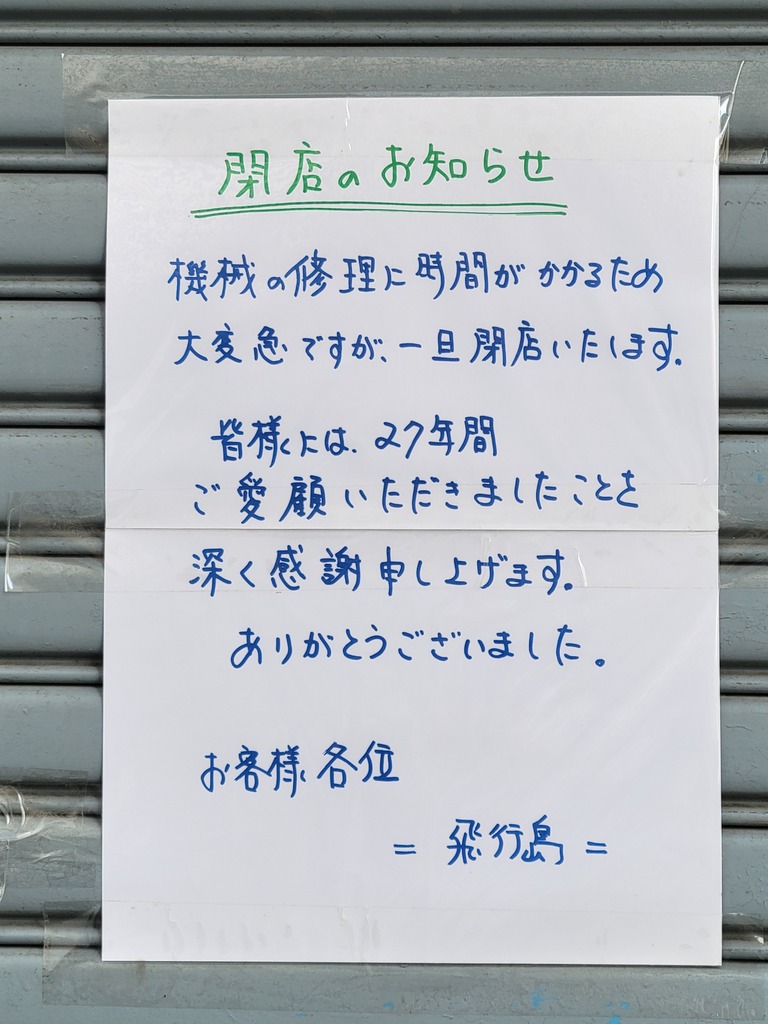 閉店のお知らせ
機械の修理に時間がかかるため
大変急ですが、一旦閉店いたします。
皆様には、27年間
ご愛顧いただきましたことを
深く感謝申し上げます。
ありがとうございました。
お客様各位
= 飛行島 =